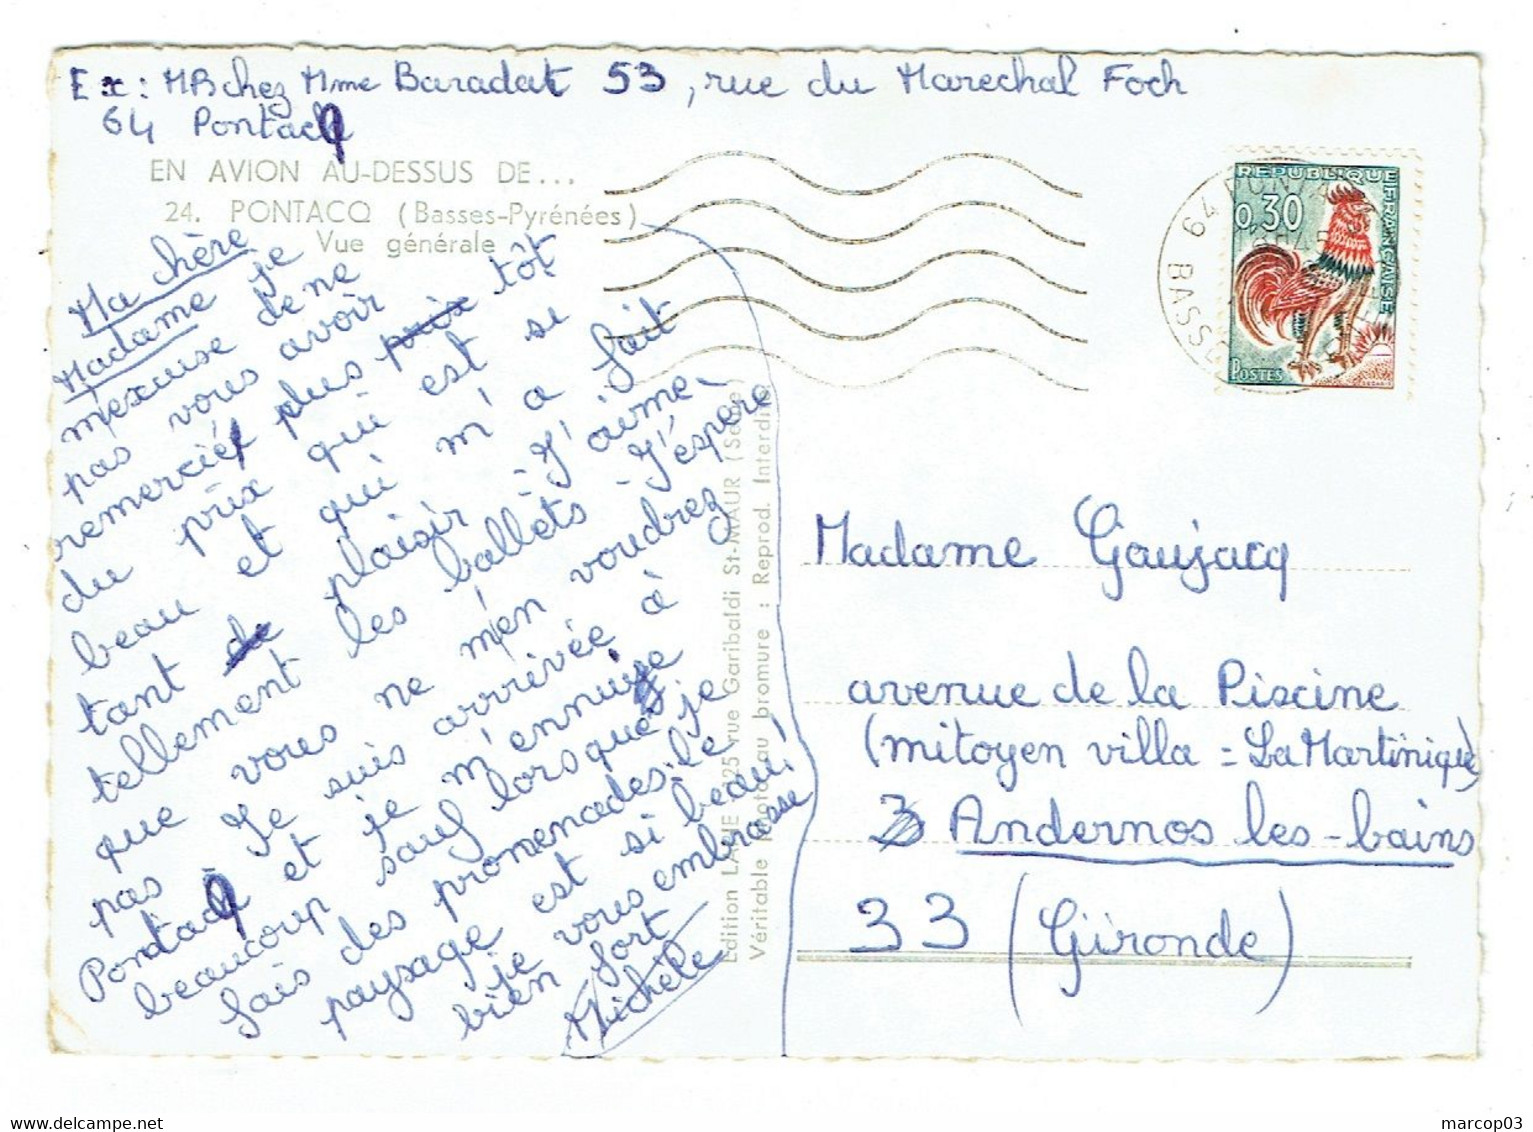 Ex: MB chez Mme Baradat 53, rue du Marechal Foch
64 Pontacq
EN AVION AU-DESSUS DE...
24. PONTACQ (Basses-Pyrénées)
Vue générale
Ma chère
Madame je
m'excuse de ne
pas vous avoir
remercié plus prix tôt
du prix qui est si
beau et qui m'a fait
tant de plaisir - J'aime
tellement les ballets - J'espère
que vous ne m'en voudrez
pas Je suis arrivée à
Pontacq et je m'ennuie
beaucoup sauf lorsque je
fais des promenades. le
paysage est si beau!
je vous embrasse
bien fort
Michèle
Edition LAPIE 125 rue Garibaldi St-MAUR (Seine)
Véritable photo au bromure : Reprod. Interdite
64
BASSES
REPUBLIQUE FRANÇAISE
0,30
POSTES
Madame Gaujacq
avenue de la Piscine
(mitoyen villa = La Martinique)
3 Andernos les-bains
33 (Gironde)
marcop03